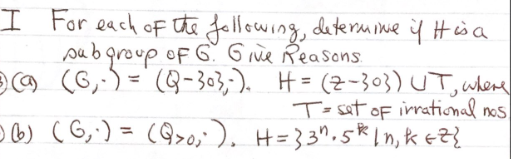 I For each of the following, determine if H is a
subgroup of G. Give Reasons.
(a) (G,·) = (Q-{0},·). H = (Z-{0}) ∪ T, where
T = set of irrational nos
(b) (G,·) = (Q>0,·). H = {3ⁿ·5ᵏ | n,k ∈ Z}